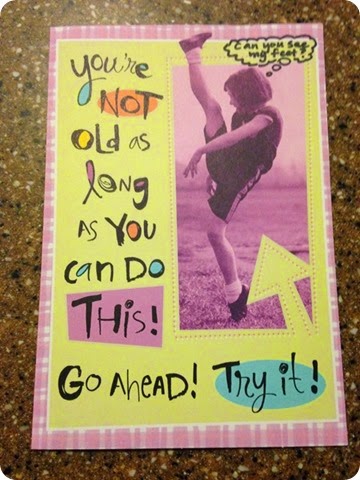 you're
NOT
old as
long
AS YOU
can DO
THis!
Can you see
my feet?
GO AHeAD! Try it!